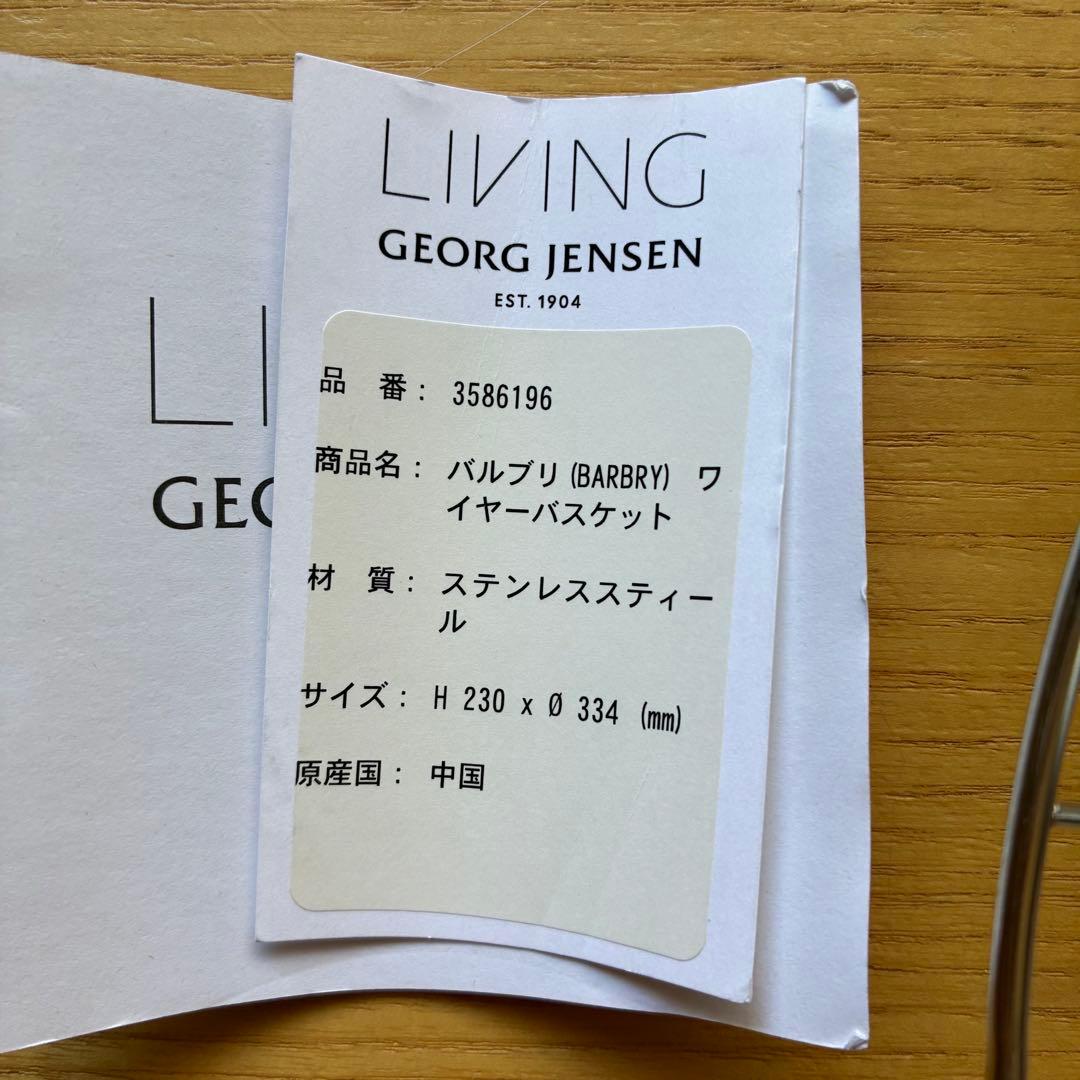 LIVING
GEORG JENSEN
EST. 1904
品 番： 3586196
商品名： バルブリ (BARBRY) ワ
イヤーバスケット
材 質： ステンレススティー
ル
サイズ： H 230 x Ø 334 (mm)
原産国： 中国
LI
GEO